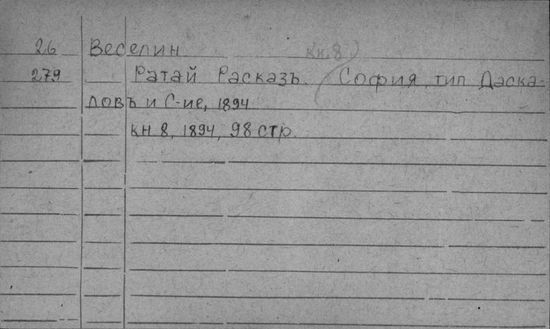 26 Веселин Кн. 8)
279 Ратай Расказъ. София, тип Даска-
ловъ и С-ие, 1894
кн 8, 1894, 98 стр.